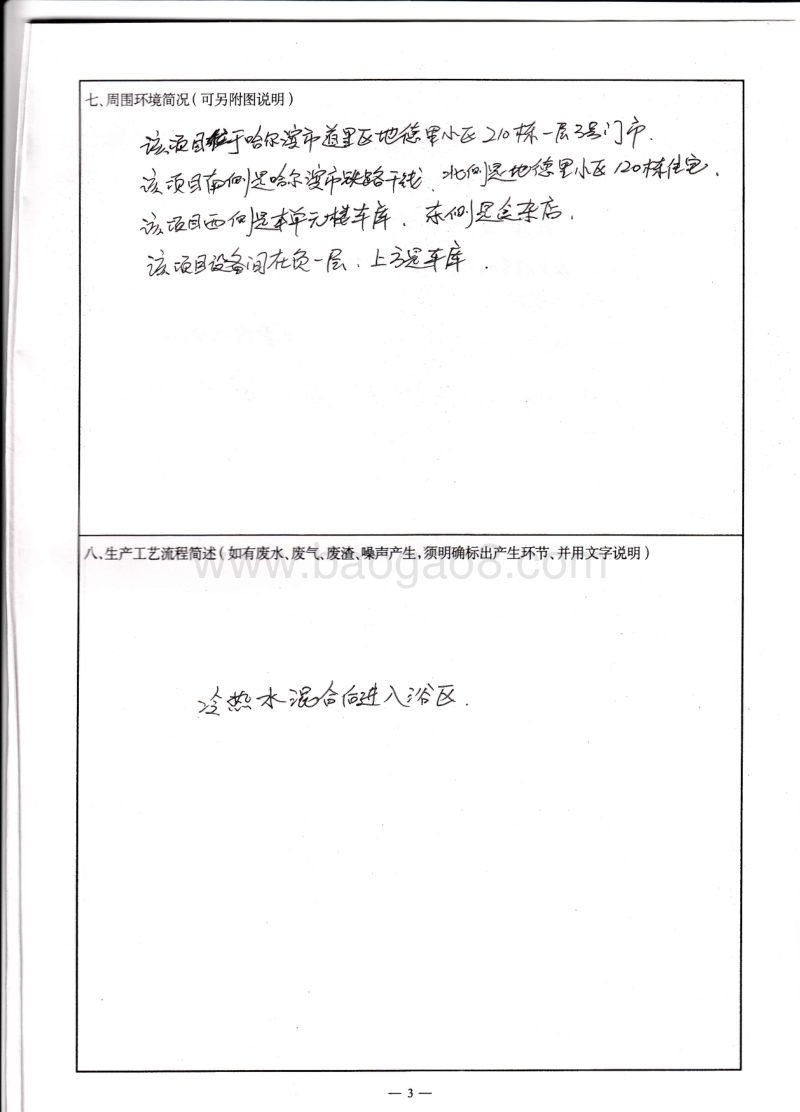 七、周围环境简况(可另附图说明)
该项目位于哈尔滨市道里区地德里小区210栋一层3号门市.
该项目南侧是哈尔滨市铁路干线、北侧是地德里小区120栋住宅.
该项目西侧是本单元楼车库. 东侧是仓杂店.
该项目设备间在负一层. 上方是车库.
八、生产工艺流程简述(如有废水、废气、废渣、噪声产生,须明确标出产生环节、并用文字说明)
www.baogao8.com
冷热水混合后进入浴区.
— 3 —